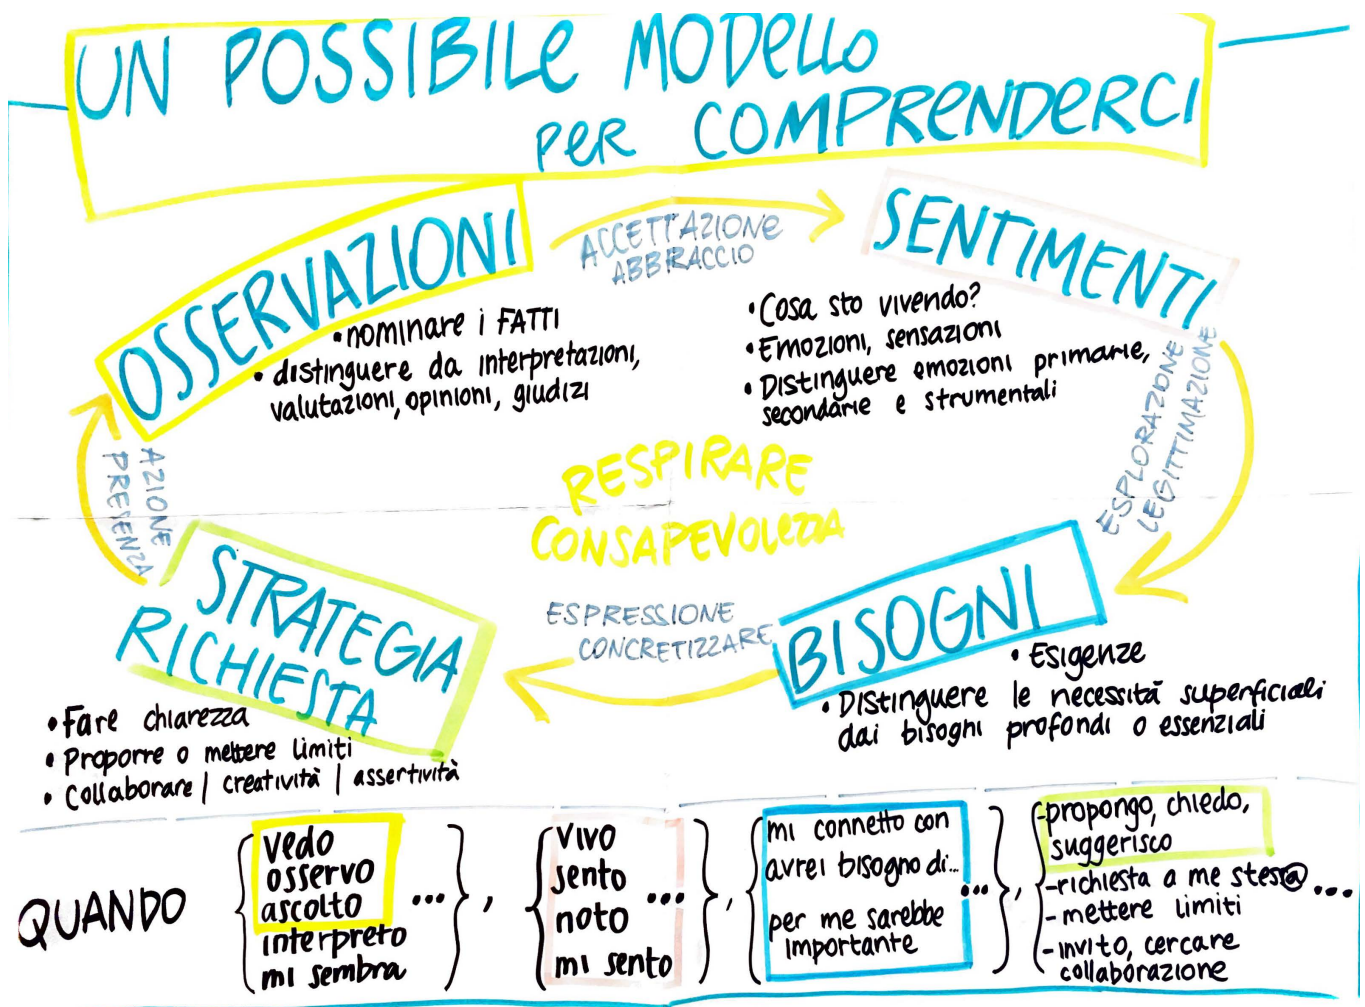 UN POSSIBILE MODELLO
PER COMPRENDERCI
OSSERVAZIONI
• nominare i FATTI
• distinguere da interpretazioni,
valutazioni, opinioni, giudizi
ACCETTAZIONE
ABBRACCIO
SENTIMENTI
• Cosa sto vivendo?
• Emozioni, sensazioni
• Distinguere emozioni primarie,
secondarie e strumentali
ESPLORAZIONE
LEGITTIMAZIONE
RESPIRARE
CONSAPEVOLEZZA
BISOGNI
• Esigenze
• Distinguere le necessità superficiali
dai bisogni profondi o essenziali
ESPRESSIONE
CONCRETIZZARE
STRATEGIA
RICHIESTA
• Fare chiarezza
• Proporre o mettere limiti
• Collaborare / creatività / assertività
AZIONE
PRESENZA
QUANDO
vedo
osservo
ascolto ...
interpreto
mi sembra
,
vivo
sento ...
noto
mi sento
,
mi connetto con
avrei bisogno di...
...
per me sarebbe
importante
,
- propongo, chiedo,
suggerisco
- richiesta a me stess@ ...
- mettere limiti
- invito, cercare
collaborazione